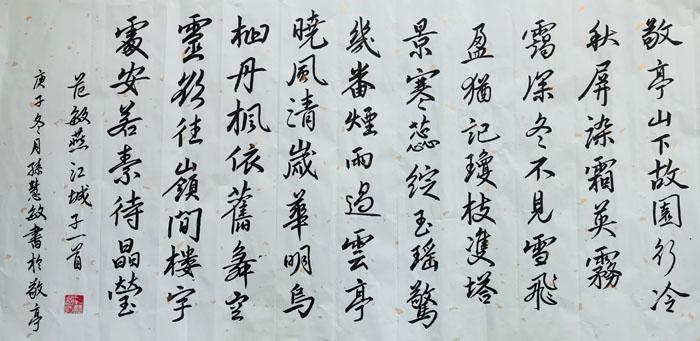 敬亭山下故園行冷
秋屏染霜英霧
靄深冬不見雪飛
盈猶記瓊枝雙塔
景寒蕊綻玉瑤驚
幾番煙雨過雲亭
曉風清歲華明烏
桕丹楓依舊舞空
靈欲往嶺間樓宇
處安若素待晶瑩
范敏燕江城子一首
庚子冬月孫慧敏書於敬亭